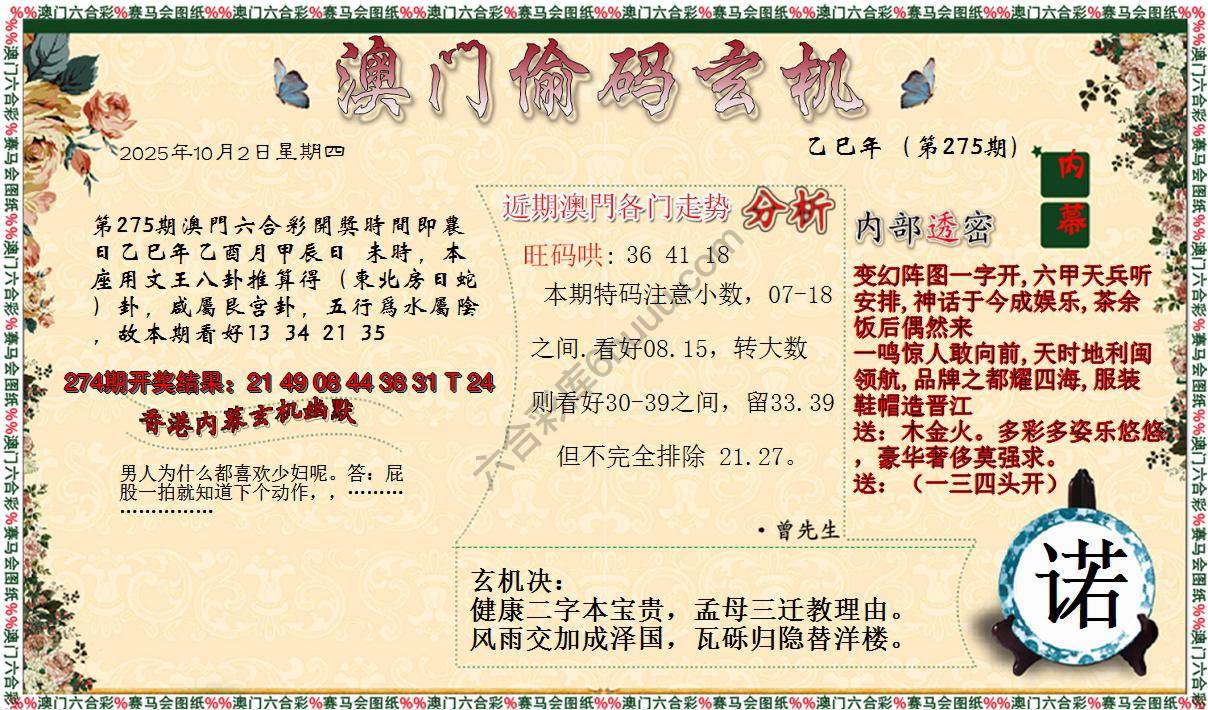 %%澳门六合彩%赛马会图纸%%澳门六合彩%赛马会图纸%%澳门六合彩%赛马会图纸%%澳门六合彩%赛马会图纸%%澳门六合彩%赛马会图纸%%澳门六合彩%赛马会图纸%%
澳门偷码玄机
2025年10月2日星期四
乙巳年（第275期）
内幕
第275期澳門六合彩開獎時間即農
日乙巳年乙酉月甲辰日 未時，本
座用文王八卦推算得（東北房日蛇
）卦，咸屬艮宫卦，五行爲水屬陰
，故本期看好13 34 21 35
274期开奖结果：21 49 08 44 38 31 T 24
香港内幕玄机幽默
男人为什么都喜欢少妇呢。答：屁
股一拍就知道下个动作，，………
……………
近期澳門各门走势 分析
旺码哄: 36 41 18
本期特码注意小数，07-18
之间.看好08.15，转大数
则看好30-39之间，留33.39
但不完全排除 21.27。
·曾先生
内部透密
变幻阵图一字开,六甲天兵听
安排,神话于今成娱乐,茶余
饭后偶然来
一鸣惊人敢向前,天时地利闽
领航,品牌之都耀四海,服装
鞋帽造晋江
送：木金火。多彩多姿乐悠悠
，豪华奢侈莫强求。
送：（一三四头开）
玄机决：
健康二字本宝贵，孟母三迁教理由。
风雨交加成泽国，瓦砾归隐替洋楼。
诺
%%澳门六合彩%赛马会图纸%%澳门六合彩%赛马会图纸%%澳门六合彩%赛马会图纸%%澳门六合彩%赛马会图纸%%澳门六合彩%赛马会图纸%%澳门六合彩%赛马会图纸%%